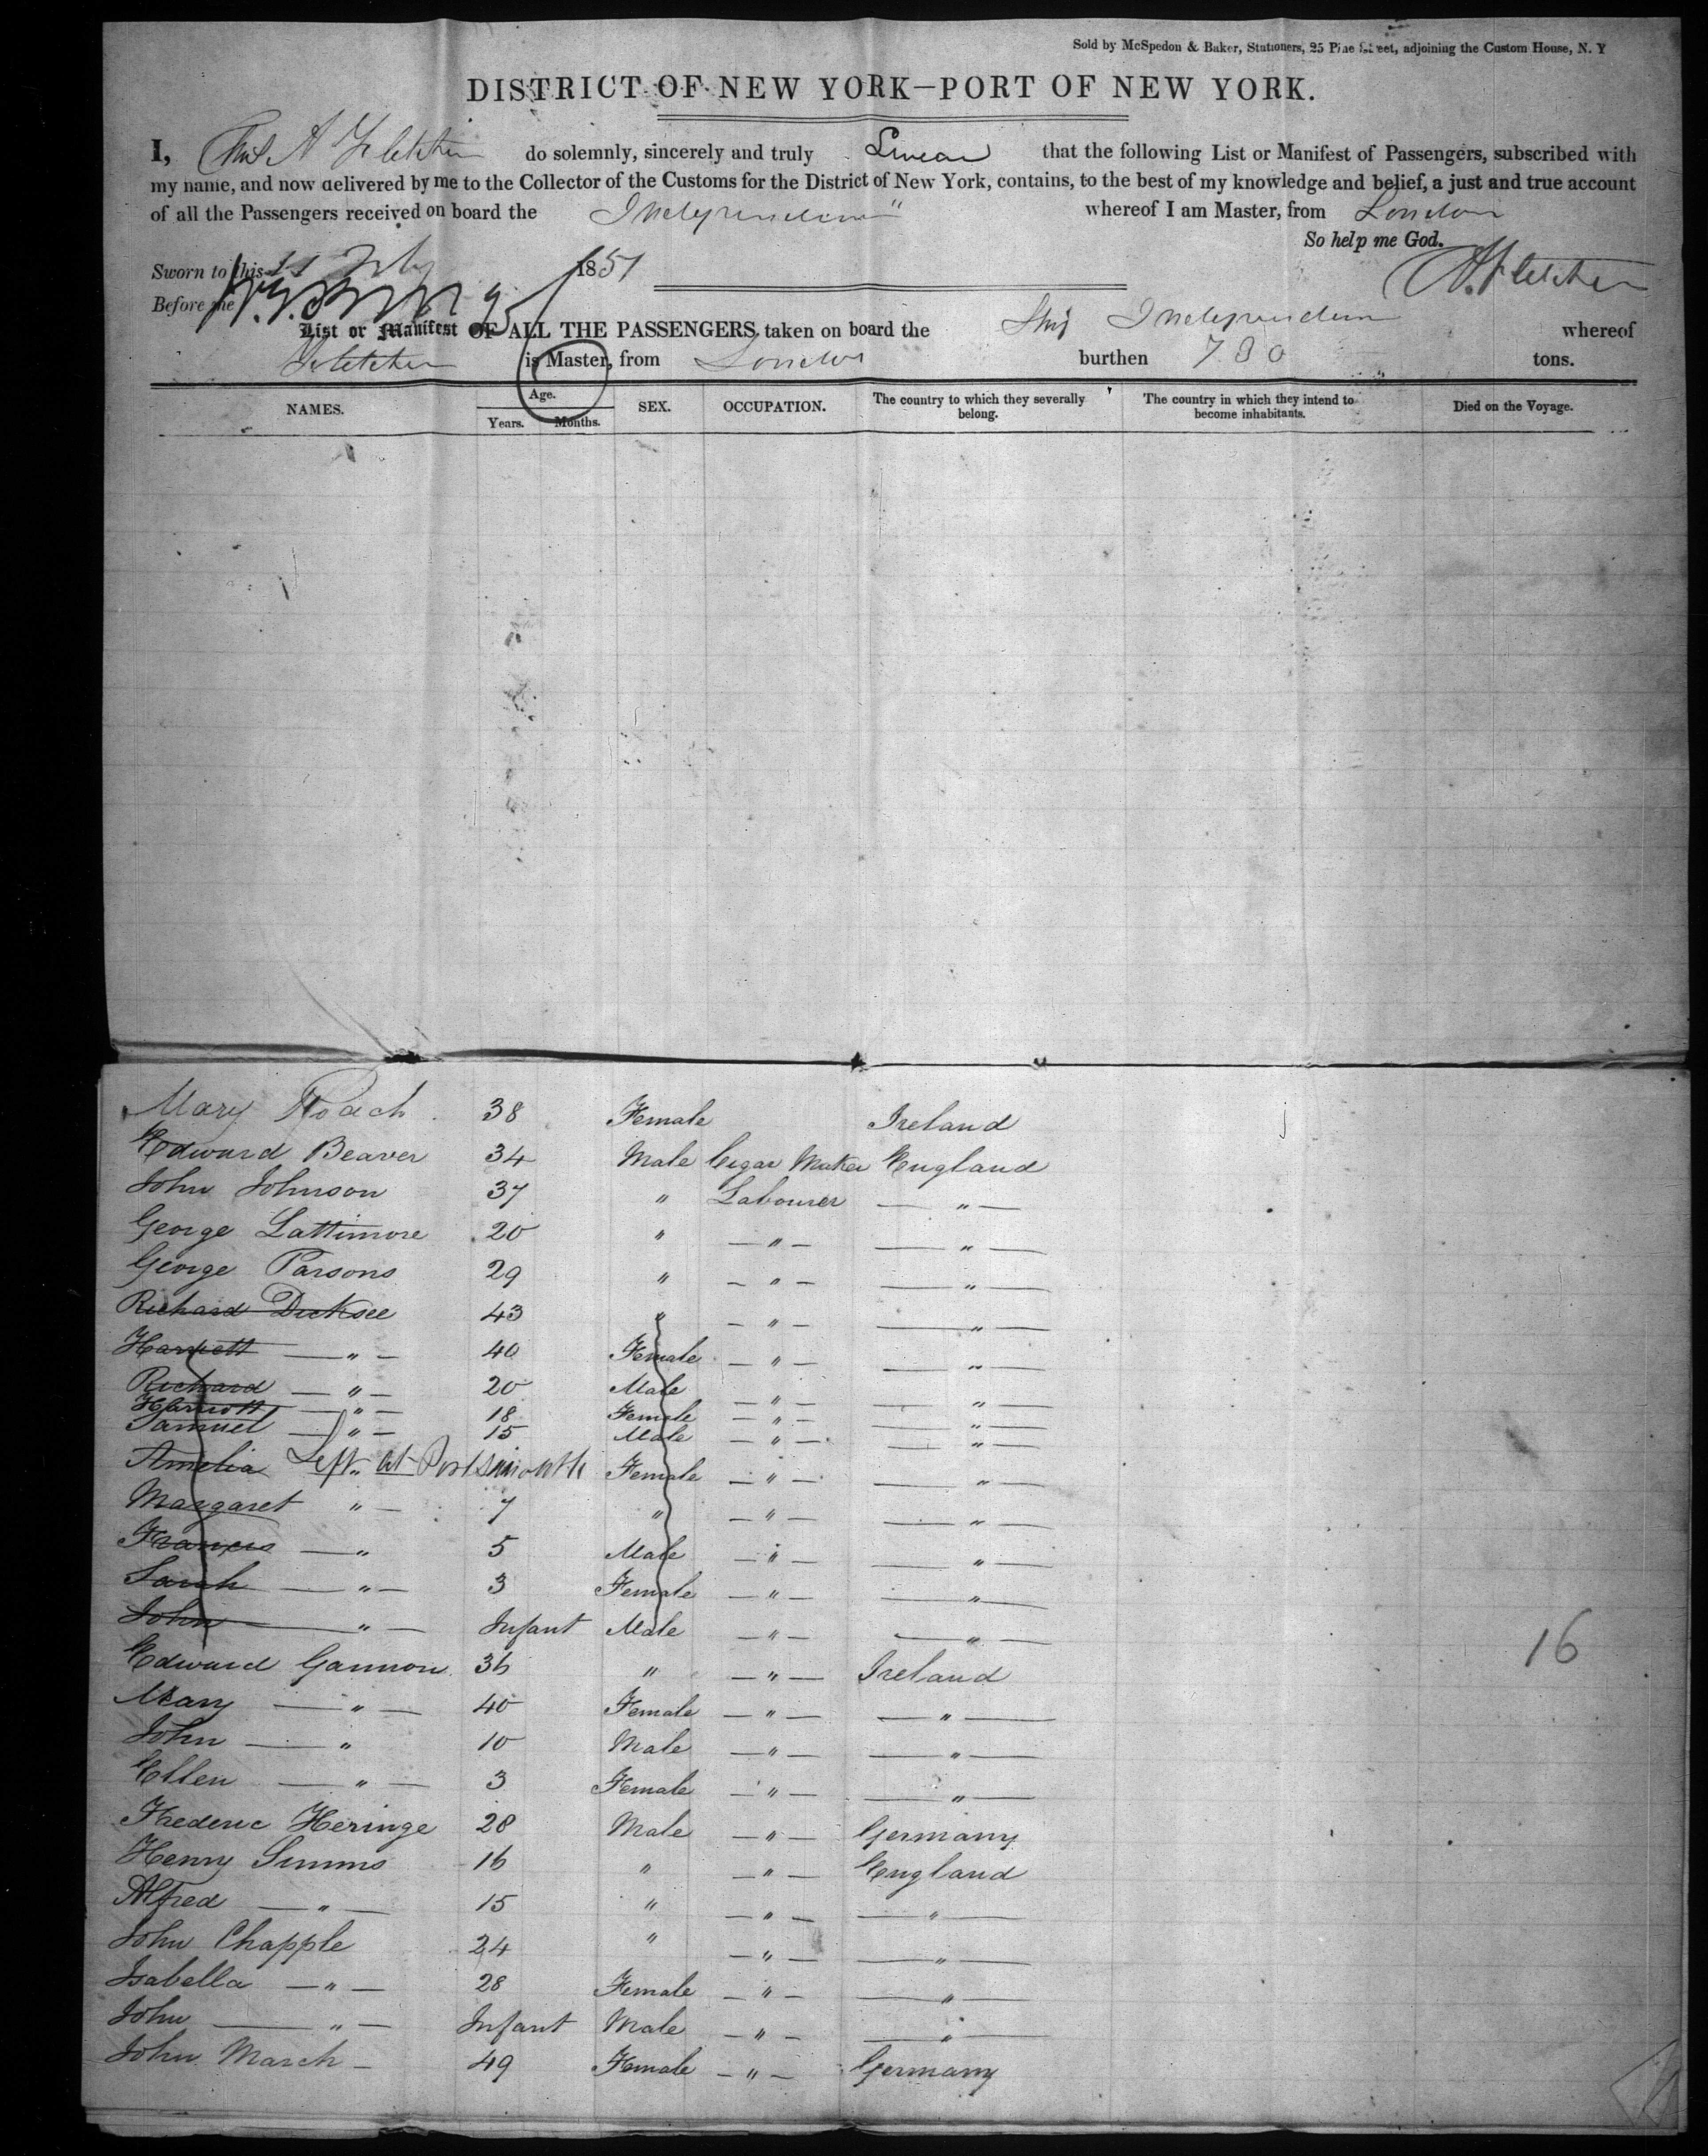 Sold by McSpedon & Baker, Stationers, 25 Pine Street, adjoining the Custom House, N. Y
DISTRICT OF NEW YORK—PORT OF NEW YORK.
I, A Fletcher do solemnly, sincerely and truly Swear that the following List or Manifest of Passengers, subscribed with
my name, and now delivered by me to the Collector of the Customs for the District of New York, contains, to the best of my knowledge and belief, a just and true account
of all the Passengers received on board the Independence" whereof I am Master, from London
So help me God.
Sworn to this 1851 A. Fletcher
Before me
List or Manifest OF ALL THE PASSENGERS taken on board the Ship Independence whereof
Fletcher is Master, from London burthen 730 tons.
NAMES. Age. Years. Months. SEX. OCCUPATION. The country to which they severally belong. The country in which they intend to become inhabitants. Died on the Voyage.
Mary Roach 38 Female Ireland
Edward Beaver 34 Male Cigar Maker England
John Johnson 37 " Labourer — " —
George Lattimore 20 " — " — — " —
George Parsons 29 " — " — — " —
Richard Dicksee 43 " — " — — " —
Harriett — " — 40 Female — " — — " —
Richard — " — 20 Male — " — — " —
Harriott — " — 18 Female — " — — " —
Samuel — " — 15 Male — " — — " —
Amelia Left at Portsmouth Female — " — — " —
Margaret " — 7 " — " — — " —
Francis — " 5 Male — " — — " —
Sarah — " — 3 Female — " — — " —
John — " — Infant Male — " — — " —
Edward Gannon 36 " — " — Ireland
Mary — " — 40 Female — " — — " —
John — " 10 Male — " — — " —
Ellen — " — 3 Female — " — — " —
Frederic Heringe 28 Male — " — Germany
Henry Simms 16 " — " — England
Alfred — " — 15 " — " — — " —
John Chapple 24 " — " — — " —
Isabella — " — 28 Female — " — — " —
John — " — Infant Male — " — — " —
John March — 49 Female — " — Germany
16